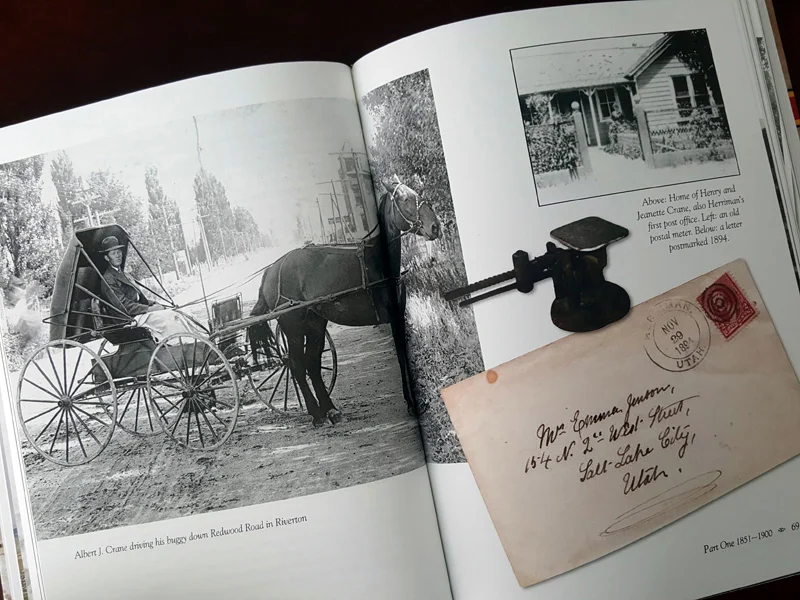 Albert J. Crane driving his buggy down Redwood Road in Riverton
Above: Home of Henry and
Jeanette Crane, also Herriman's
first post office. Left: an old
postal meter. Below: a letter
postmarked 1894.
HERRIMAN,
NOV
29
1894
UTAH
Mrs Emma Jenson,
154 N. 2nd West Street,
Salt Lake City,
Utah.
Part One 1851~1900 69